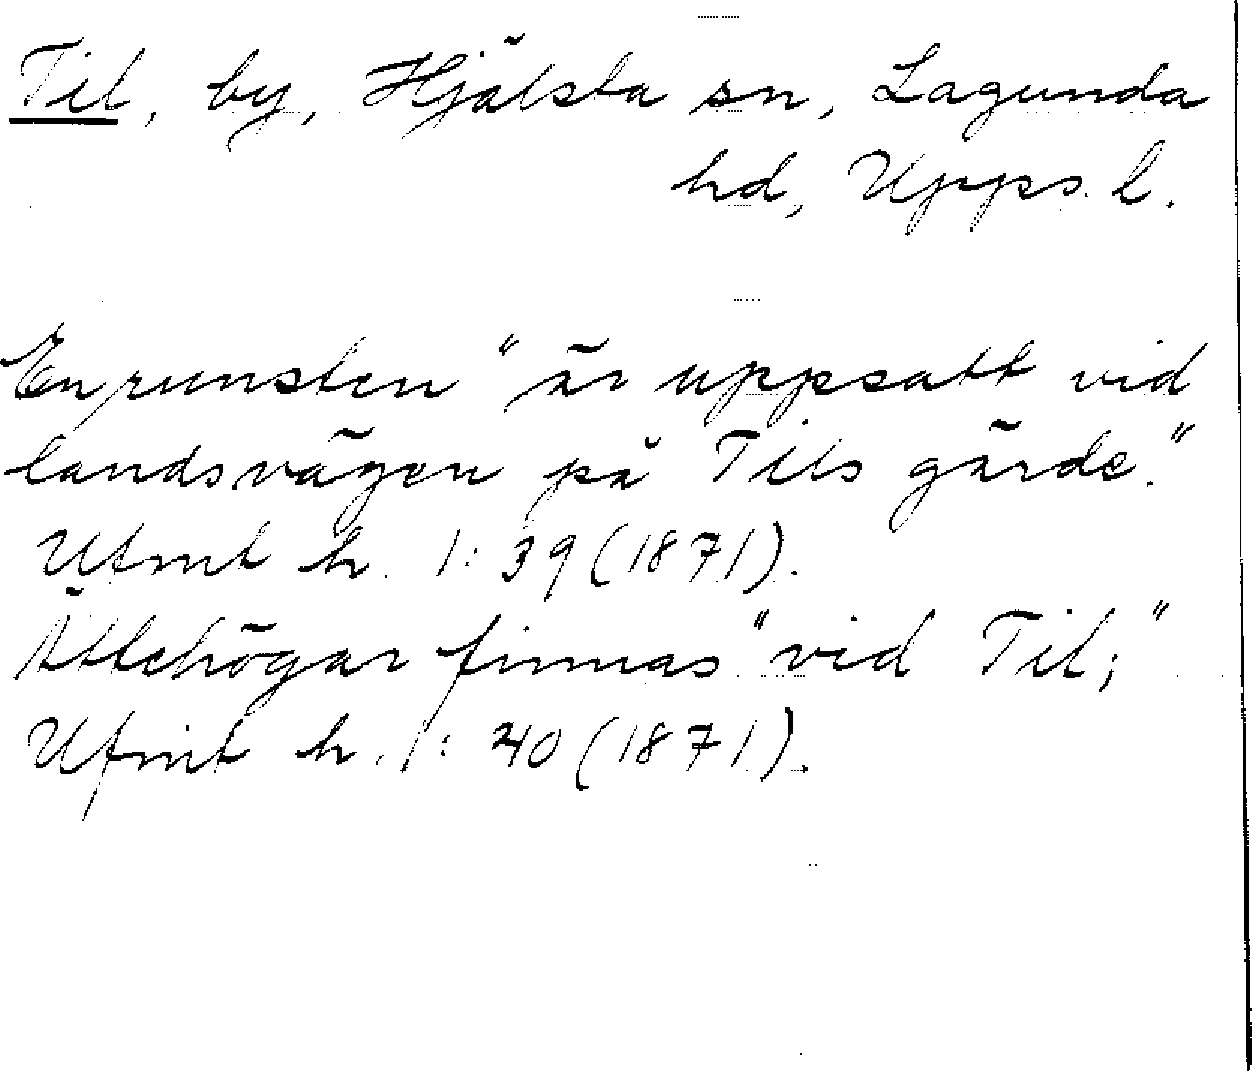 Til, by, Hjälsta sn, Lagunda
hd, Upps. l.
En runsten "är uppsatt vid
landsvägen på Tils gärde."
Ufmt h. 1:39 (1871).
Ättehögar finnas "vid Til;"
Ufmt h. 1:40 (1871).